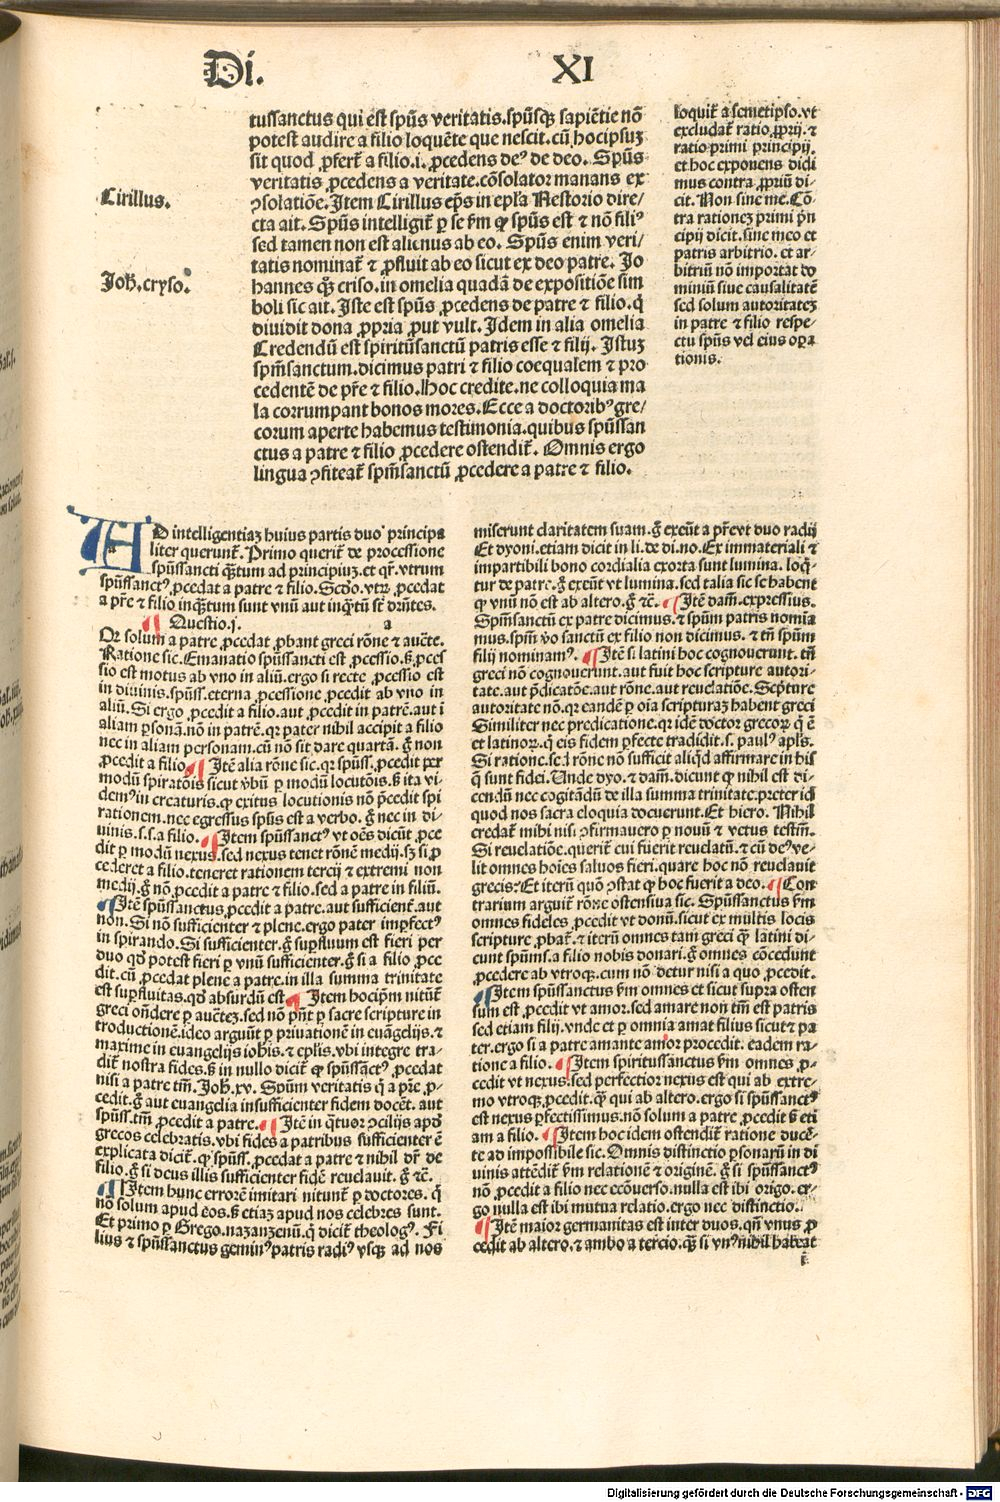 Di.
XI
tussanctus qui est spūs veritatis.spūsq̄ʒ sapiētie nō
potest audire a filio loquēte que nescit.cū hocipsuʒ
sit quod ꝓfert᷑ a filio.i.ꝓcedens deꝰ de deo. Spūs
veritatis ꝓcedens a veritate.cōsolator manans ex
ↄsolatiōe.Item Cirillus ep̄s in epl̄a Nestorio dire/
cta ait. Spūs intelligit᷑ ꝑ se ẜm ꝙ spūs est ⁊ nō filiꝰ
sed tamen non est alienus ab eo. Spūs enim veri/
tatis nominat᷑ ⁊ ꝓfluit ab eo sicut ex deo patre. Jo
hannes qq̄ʒ criso.in omelia quadā de expositiōe sim
boli sic ait. Iste est spūs ꝓcedens de patre ⁊ filio.q̇
diuidit dona ꝓpria ꝓut vult. Idem in alia omelia
Credendū est spiritūsanctū patris esse ⁊ filij. Istuʒ
spm̄sanctum.dicimus patri ⁊ filio coequalem ⁊ pro
cedentē de pr̄e ⁊ filio.Hoc credite.ne colloquia ma
la corrumpant bonos mores.Ecce a doctoribꝰ gre/
corum aperte habemus testimonia.quibus spūssan
ctus a patre ⁊ filio ꝓcedere ostendit᷑. Omnis ergo
lingua ↄfiteat᷑ spm̄sanctū ꝓcedere a patre ⁊ filio.
Cirillus.
Joh̄.cryso.
loquit᷑ a semetipso.vt
excludat᷑ ratio ꝓprij.⁊
ratio primi principij.
et hoc exponens didi
mus contra ꝓpriū di-
cit. Non sine me. Cō-
tra rationeʒ primi prin
cipij dicit.sine meo et
patris arbitrio. et ar-
bitriū nō importat do
miniū siue causalitatē
sed solum autoritateʒ
in patre ⁊ filio respe-
ctu spūs vel eius oꝑa
tionis.
AD intelligentiaʒ huius partis duo principa
liter querunt᷑. Primo querit᷑ de processione
spūssancti qʒtum ad principiuʒ.et qr̄.vtrum
spūssanctꝰ ꝓcedat a patre ⁊ filio. Scd̄o.vtrʒ ꝓcedat
a pr̄e ⁊ filio inqʒtum sunt vnū aut inqʒtū st̄ dr̄ntes.
Questio.j. a
Qr̄ solum a patre ꝓcedat ꝓbant greci rōne ⁊ auc̄te.
Ratione sic. Emanatio spūssancti est ꝓcessio.s̄ ꝓces
sio est motus ab vno in aliū.ergo si recte ꝓcessio est
in diuinis.spūss.eterna ꝓcessione ꝓcedit ab vno in
aliū. Si ergo ꝓcedit a filio.aut ꝓcedit in patrē.aut ī
aliam ꝑsonā.nō in patrē.qr pater nihil accipit a filio
nec in aliam personam.cū nō sit dare quartā. g̊ non
ꝓcedit a filio. Itē alia rōne sic.qr spūss.ꝓcedit per
modū spiratōis sicut v̇bū ꝑ modū locutōis.s̄ ita vi-
demꝰ in creaturis.ꝙ exitus locutionis nō p̄cedit spi
rationem.nec egressus spūs est a verbo. g̊ nec in di-
uinis.s.s.a filio. Item spūssanctꝰ vt oēs dicūt ꝓce
dit ꝑ modū nexus.sed nexus tenet rōnē medij.sʒ si ꝓ
cederet a filio.teneret rationem tercij ⁊ extremi non
medij.g̊ nō ꝓcedit a patre ⁊ filio.sed a patre in filiū.
Itē spūssanctus ꝓcedit a patre.aut sufficient᷑.aut
non. Si nō sufficienter ⁊ plene.ergo pater imꝑfectꝰ
in spirando. Si sufficienter.g̊ suꝑfluum est fieri per
duo qd̄ potest fieri ꝑ vnū sufficienter.g̊ si a filio ꝓce
dit.cū ꝓcedat plene a patre.in illa summa trinitate
est suꝑfluitas.qd̄ absurdū est. Item hocip̄m nitūt᷑
greci on̄dere ꝑ auc̄teʒ.sed nō pn̄t ꝑ sacre scripture in
troductionē.ideo arguūt ꝑ priuationē in euāgelijs.⁊
maxime in euangelijs ioh̄is.⁊ epl̄is.vbi integre tra-
dit᷑ nostra fides.s̄ in nullo dicit᷑ ꝙ spūssāctꝰ ꝓcedat
nisi a patre tm̄. Joh̄.xv. Spūm veritatis q̇ a pr̄e ꝓ-
cedit.g̊ aut euangelia insufficienter fidem docēt. aut
spūss.tm̄ ꝓcedit a patre. Itē in q̄tuor ↄcilijs apd̄
grecos celebratis.vbi fides a patribus sufficienter ē
explicata dicit᷑.ꝙ spūss. ꝓcedat a patre ⁊ nihil dr̄ de
filio.g̊ si deus illis sufficienter fidē reuelauit. g̊ ⁊c̄.
Item hunc errorē imitari nitunt᷑ ꝑ doctores. q̇
nō solum apud eos.s̄ etiaʒ apud nos celebres sunt.
Et primo ꝑ Grego.nazanzenū.q̇ dicit᷑ theologꝰ. Fi
lius ⁊ spūssanctus geminꝰ patris radiꝰ vsqʒ ad nos
miserunt claritatem suam.g̊ exeūt a pr̄e vt duo radij
Et dyoni.etiam dicit in li.de di.no. Ex immateriali ⁊
impartibili bono cordialia exorta sunt lumina. loq̄-
tur de patre.g̊ exeūt vt lumina.sed talia sic se habent
ꝙ vnū nō est ab altero.g̊ ⁊c̄. Itē dam̄.expressius.
Spm̄sanctū ex patre dicimus.⁊ spūm patris nomīa
mus.spm̄ v̊o sanctū ex filio non dicimus. ⁊ tn̄ spūm
filij nominamꝰ. Itē si latini hoc cognouerunt. tn̄
greci nō cognouerunt.aut fuit hoc scripture autori-
tate.aut p̄dicatōe.aut rōne.aut reuelatiōe. Sc̄pture
autoritate nō.qr eandē ꝑ oīa scripturaʒ habent greci
Similiter nec predicatione.qr idē doctor grecoꝝ q̇ ē
et latinoꝝ.q̇ eis fidem ꝑfecte tradidit.s. paulꝰ apl̄s.
Si ratione.sed rōne nō sufficit aliqd̄ affirmare in his
q̄ sunt fidei. Unde dyo.⁊ dam̄.dicunt ꝙ nihil est di-
cendū nec cogitādū de illa summa trinitate.preter id̄
quod nos sacra eloquia docuerunt. Et hiero. Nihil
credat᷑ mihi nisi ↄfirmauero ꝑ nouū ⁊ vetus testm̄.
Si reuelatiōe.querit᷑ cui fuerit reuelatū.⁊ cū deꝰ ve-
lit omnes hoīes saluos fieri.quare hoc nō reuelauit
grecis? Et iterū quō ↄstat ꝙ hoc fuerit a deo. Con
trarium arguit᷑ rōne ostensiua sic. Spūssanctus ẜm
omnes fideles ꝓcedit vt donū.sicut ex multis locis
scripture ꝓbat᷑.⁊ iterū omnes tam greci qʒ latini di-
cunt spūms.a filio nobis donari.g̊ omnes cōcedunt
ꝓcedere ab vtroqʒ.cum nō detur nisi a quo ꝓcedit.
Item spūssanctus ẜm omnes et sicut supra osten
sum est ꝓcedit vt amor.sed amare non tm̄ est patris
sed etiam filij.vnde et ꝑ omnia amat filius sicut ⁊ pa
ter.ergo si a patre amante amor procedit. eadem ra-
tione a filio. Item spiritussanctus ẜm omnes ꝓ-
cedit vt nexus.sed perfectior nexus est qui ab extre-
mo vtroqʒ.ꝓcedit.qʒ qui ab altero.ergo si spūssanctꝰ
est nexus ꝑfectissimus.nō solum a patre ꝓcedit s̄ eti
am a filio. Item hoc idem ostendit᷑ ratione ducē-
te ad impossibile sic. Omnis distinctio ꝑsonarū in di
uinis attēdit᷑ ẜm relationē ⁊ originē. g̊ si spūssanctꝰ
nō ꝓcedit a filio nec ecōuerso.nulla est ibi origo. er-
go nulla est ibi mutua relatio.ergo nec distinctio.
Itē maior germanitas est inter duos.qn̄ vnus ꝓ
cedit ab altero.⁊ ambo a tercio.qʒ si vnꝰ nihil habeat
i
Digitalisierung gefördert durch die Deutsche Forschungsgemeinschaft - DFG